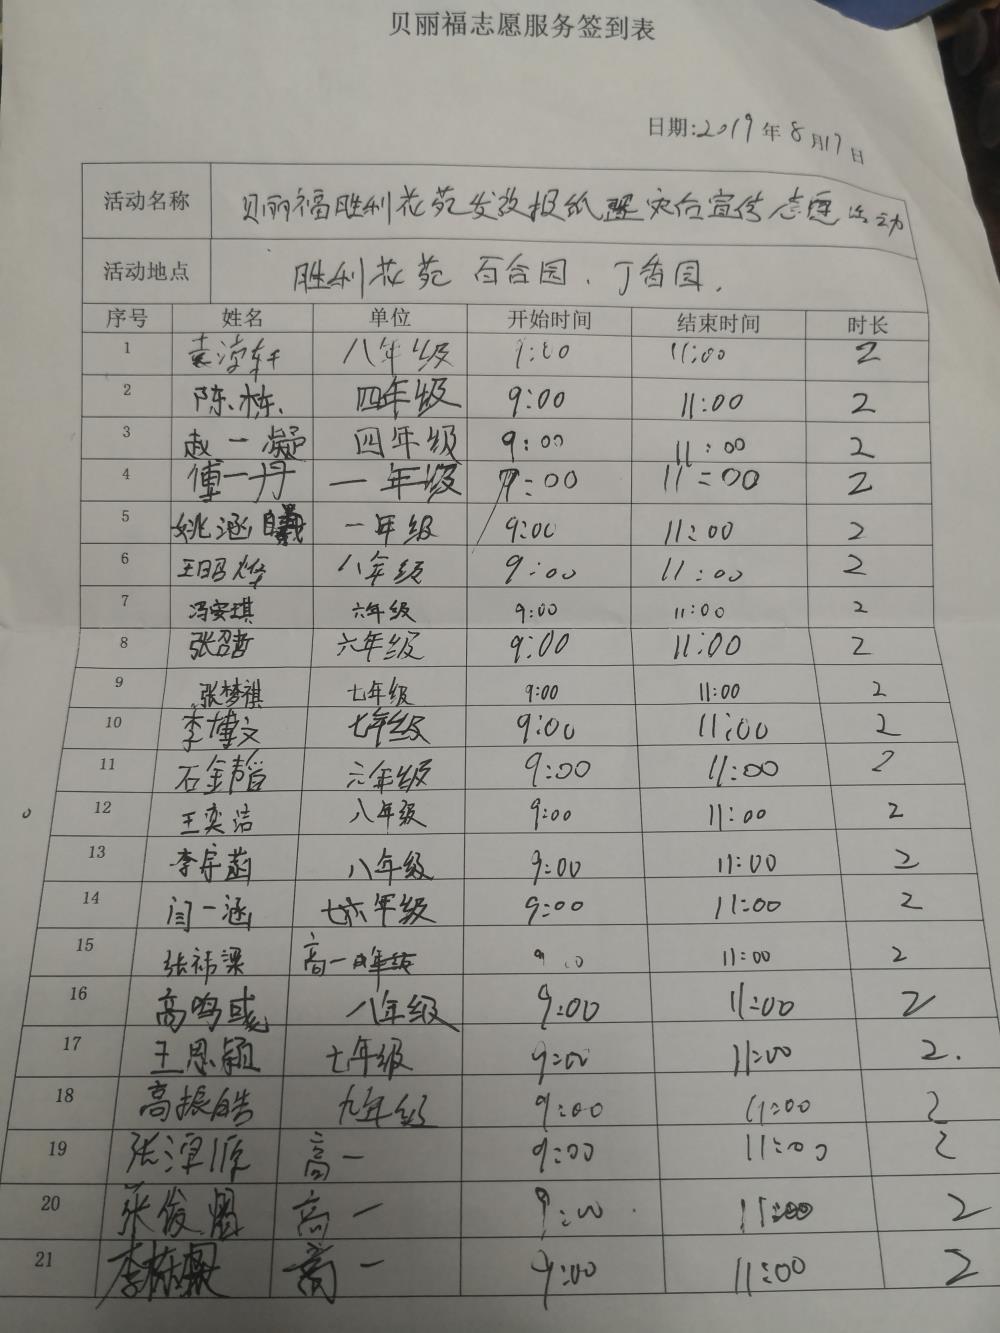 贝丽福志愿服务签到表
日期:2019年8月17日
活动名称 贝丽福胜利花苑发放报纸 灾后宣传志愿活动
活动地点 胜利花苑 百合园、丁香园.
序号 姓名 单位 开始时间 结束时间 时长
1 袁淳轩 八年级 9:00 11:00 2
2 陈栋 四年级 9:00 11:00 2
3 赵一凝 四年级 9:00 11:00 2
4 傅一丹 一年级 9:00 11:00 2
5 姚涵曦 一年级 9:00 11:00 2
6 王昭烨 八年级 9:00 11:00 2
7 冯安琪 六年级 9:00 11:00 2
8 张召哲 六年级 9:00 11:00 2
9 张梦祺 七年级 9:00 11:00 2
10 李博文 七年级 9:00 11:00 2
11 石金韬 六年级 9:00 11:00 2
12 王奕洁 八年级 9:00 11:00 2
13 李宇菡 八年级 9:00 11:00 2
14 闫一涵 年级 9:00 11:00 2
15 张祎 高一 11:00 2
16 高鸣 八年级 9:00 11:00 2
17 王思颖 七年级 9:00 11:00 2.
18 高振皓 九年级 9:00 11:00 2
19 张淖源 高一 9:00 11:00 2
20 张俊 高一 9:00 11:00 2
21 李栋 高一 9:00 11:00 2